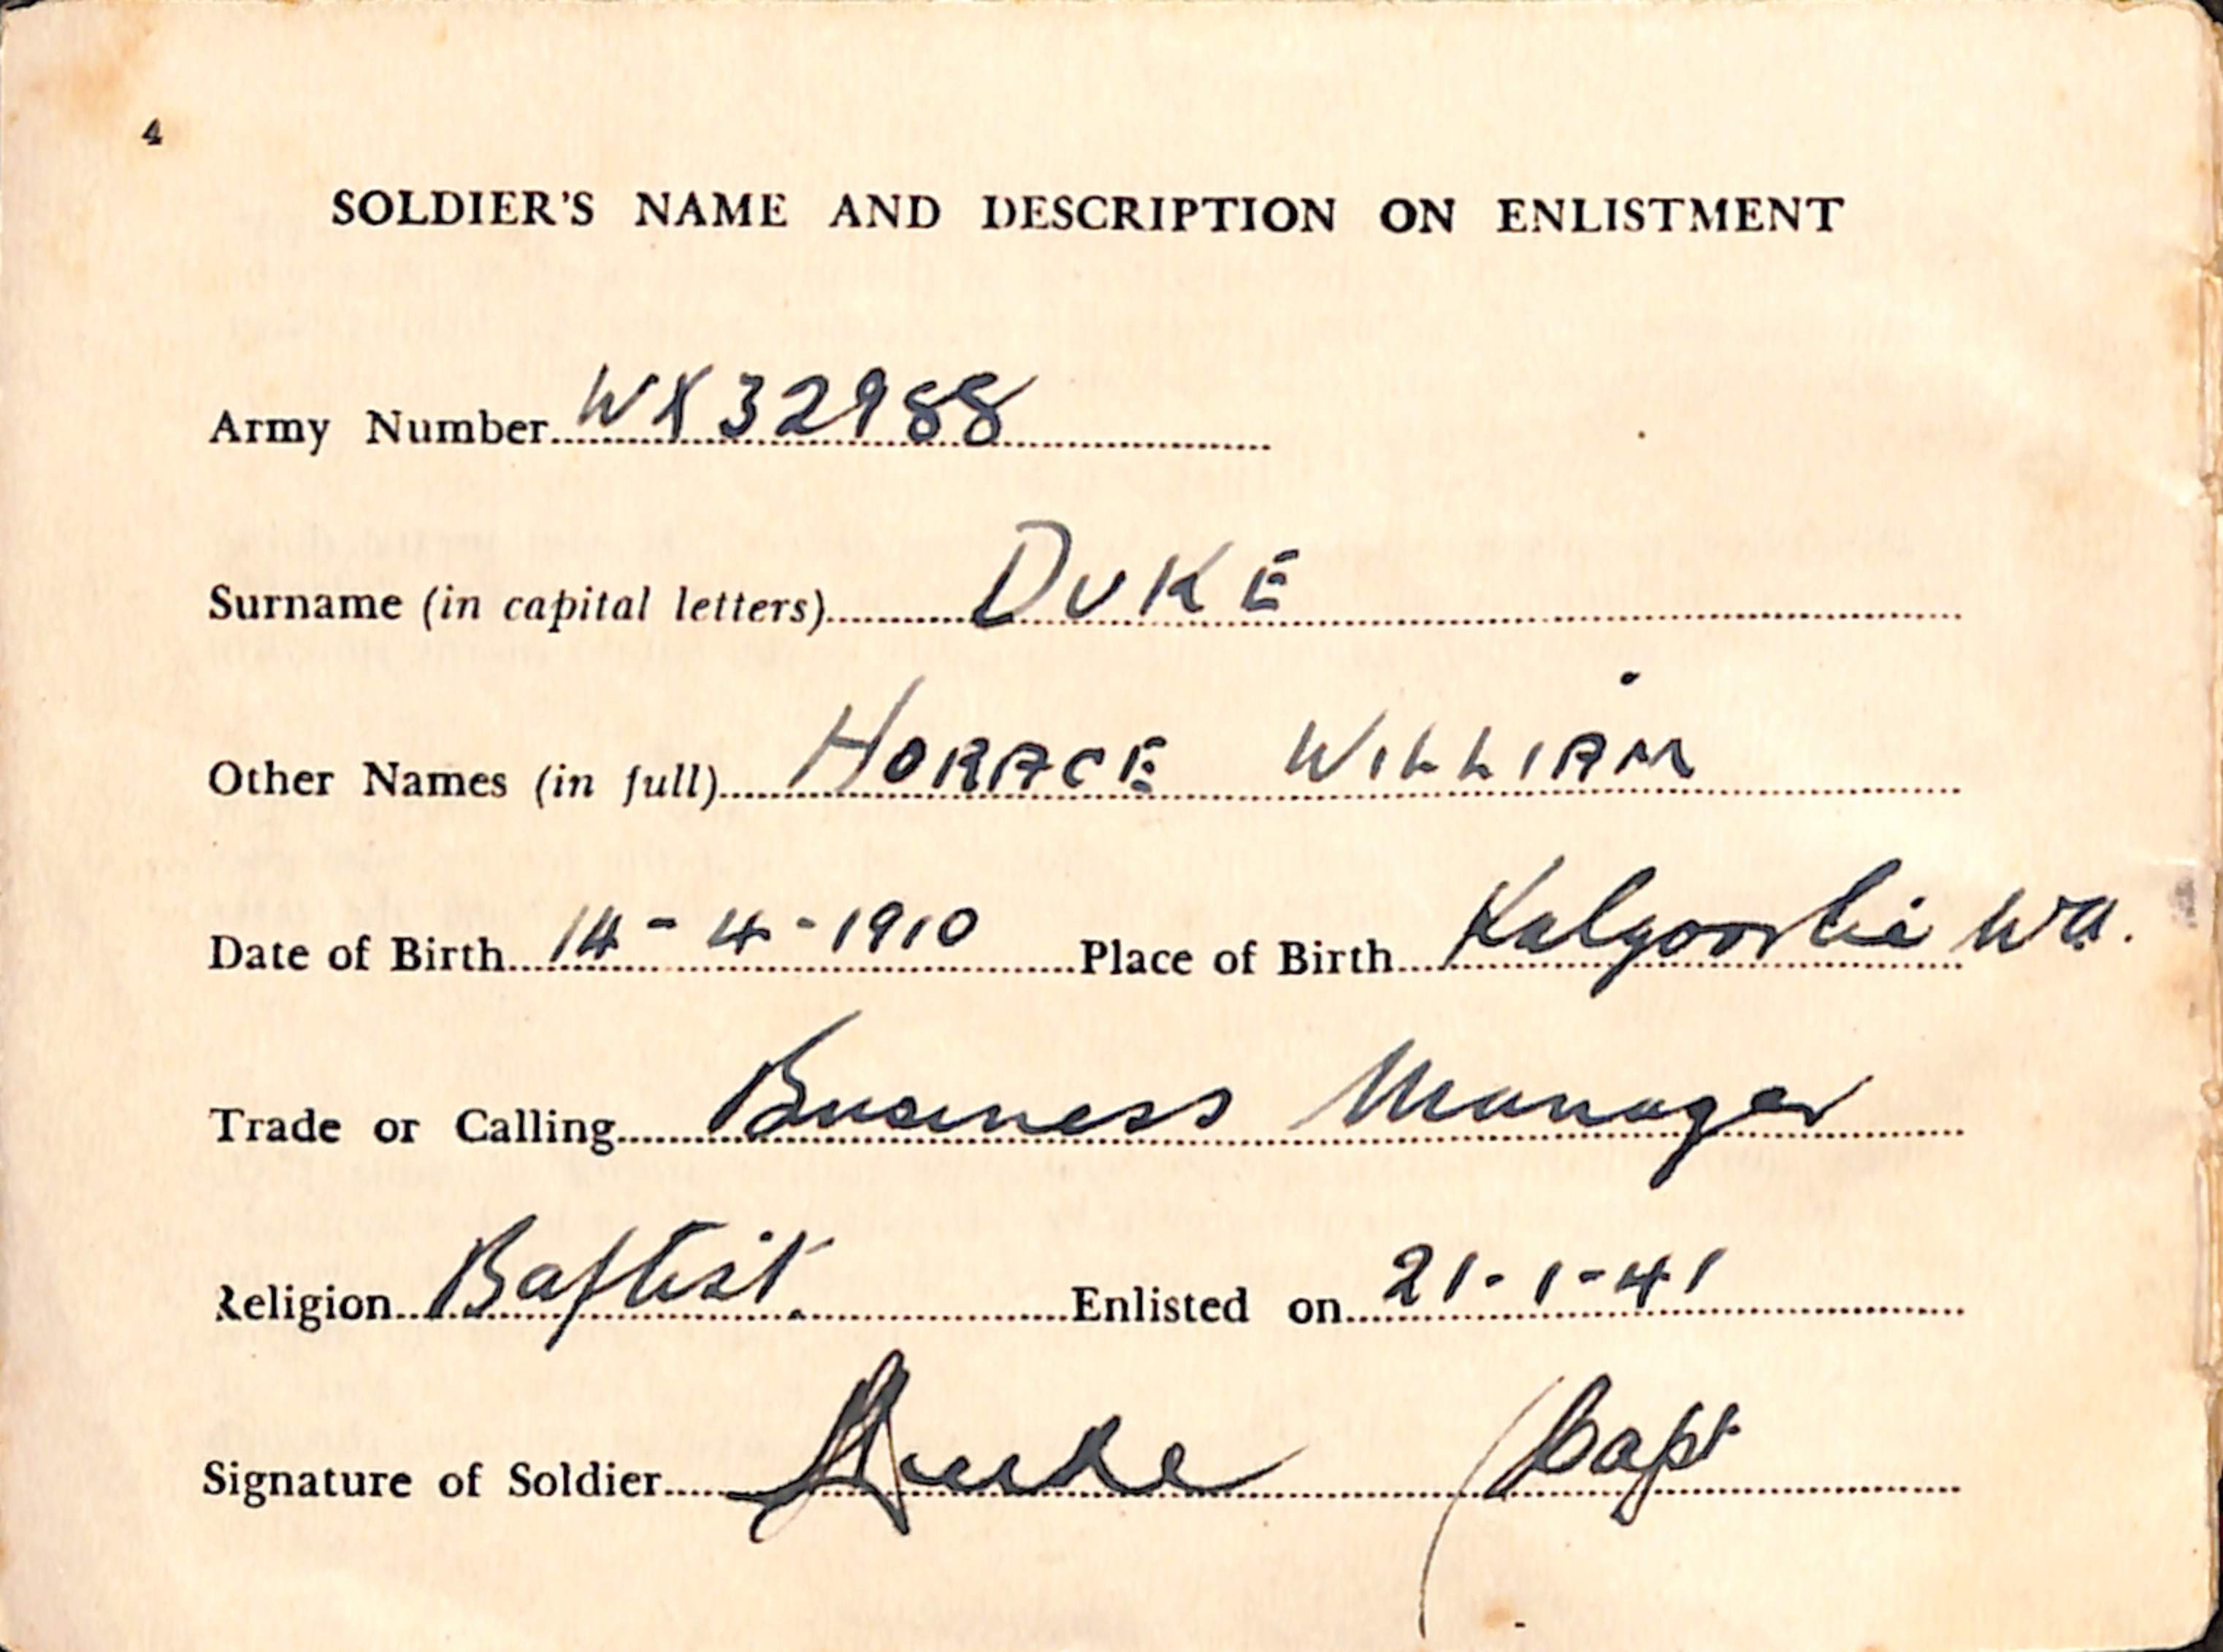 4
SOLDIER'S NAME AND DESCRIPTION ON ENLISTMENT
Army Number WX32988
Surname (in capital letters) DUKE
Other Names (in full) HORACE WILLIAM
Date of Birth 14-4-1910 Place of Birth Kalgoorlie WA.
Trade or Calling Business Manager
Religion Baptist. Enlisted on 21-1-41
Signature of Soldier Duke Capt